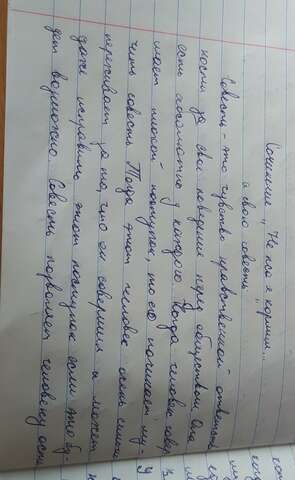 Сочинение „Не пса я кормил...
и свою совесть"
Совесть - это чувство нравственной ответствен
ности за своё поведение перед обществом. Она
есть абсолютно у каждого. Когда человек совер
шает плохой поступок, то его начинает му-
чить совесть. Тогда этот человек очень сильно
переживает за то, что он совершил и может
даже исправить этот поступок если это бу-
дет возможно. Совесть позволяет человеку осо